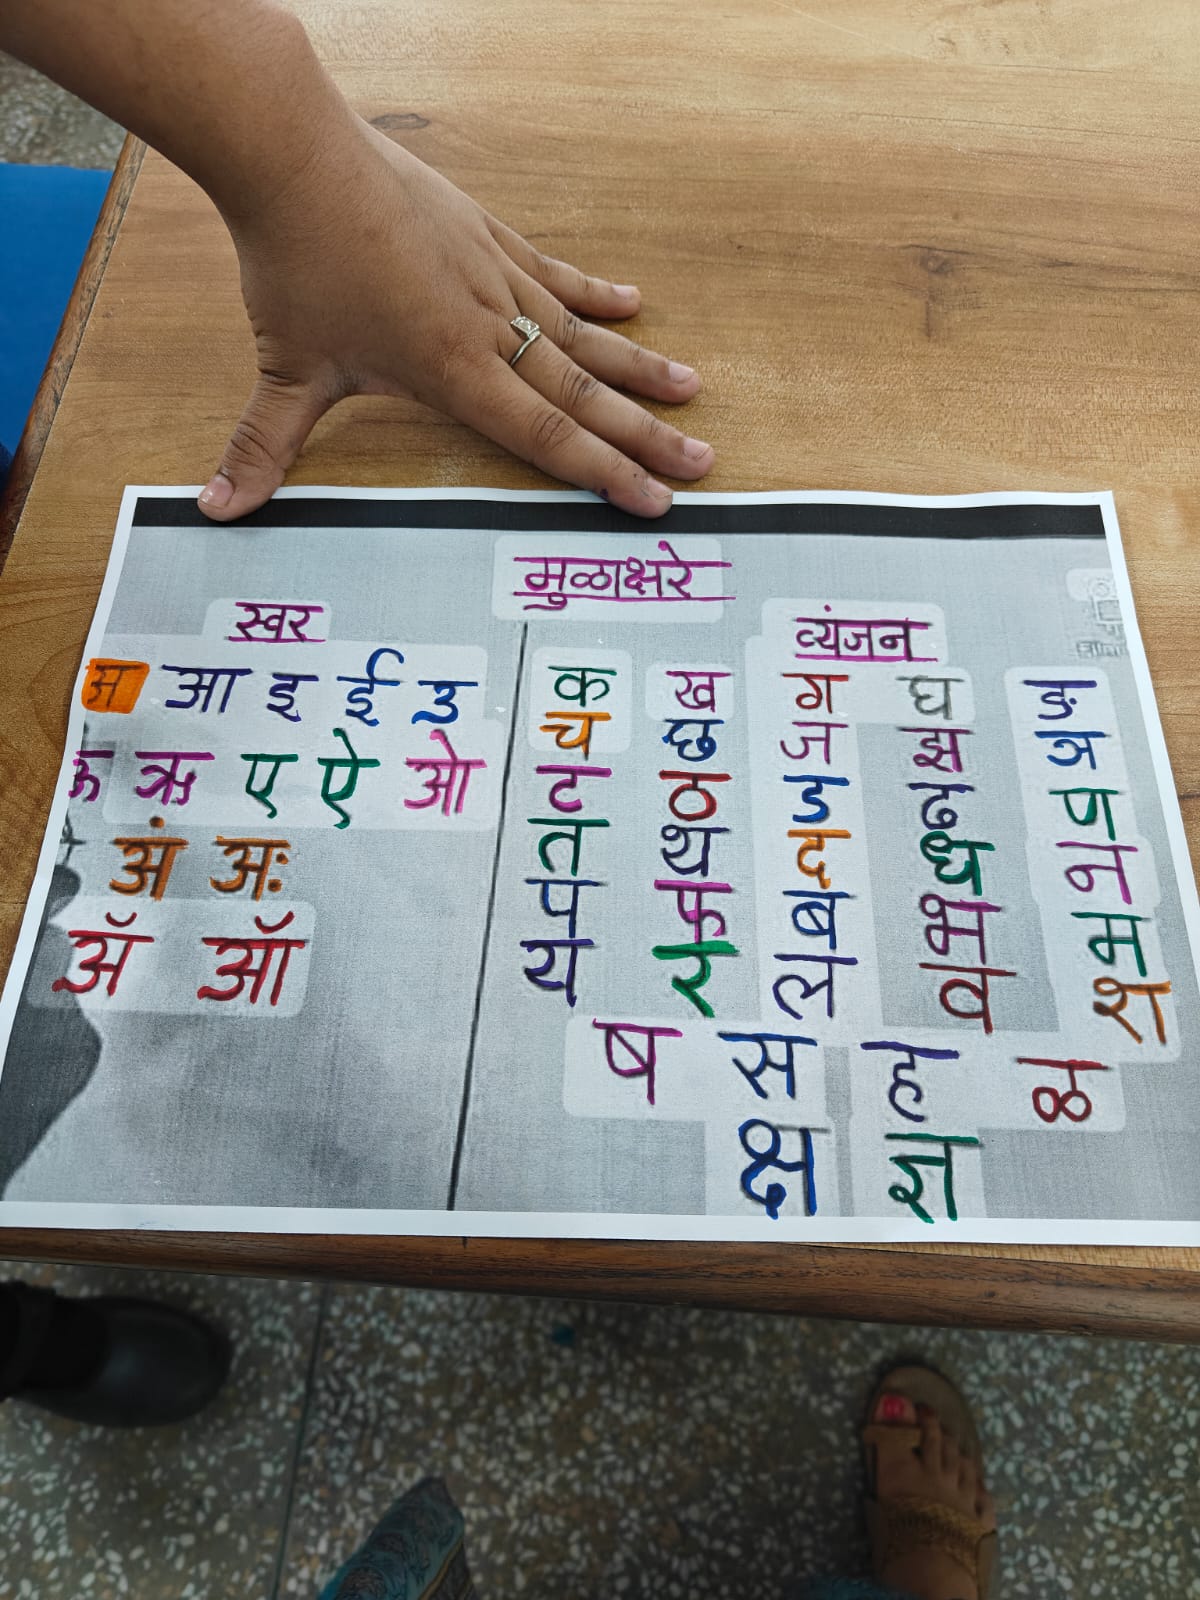 मुळाक्षरे
स्वर
अ आ इ ई उ
ऊ ऋ ए ऐ ओ
अं अः
अॅ ऑ
व्यंजन
क ख ग घ ङ
च छ ज झ ञ
ट ठ ड ढ ण
त थ द ध न
प फ ब भ म
य र ल व श
ष स ह ळ
क्ष ज्ञ